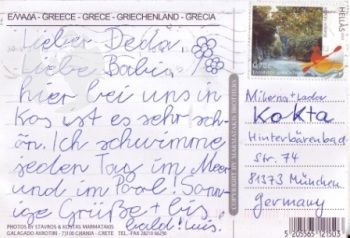 ΕΛΛΑΔΑ - GREECE - GRECE - GRIECHENLAND - GRECIA
Lieber Deda,
Liebe Babia,
hier bei uns in
Kos ist es sehr sch
ön. Ich schwimme
jeden Tag im Meer
und im Pool! Sonn
ige Grüße + bis
bald!
PHOTOS BY STAVROS & KOSTAS MARMATAKIS
GALAGADO AKROTIRI - 73100 CHANIA - CRETE TEL.-FAX
COPYRIGHT BY MARMATAKIS BROTHERS
HELLAS
Kokta
Hinterbärenbad
Str. 74
81373 München
Germany
5 203365 121003